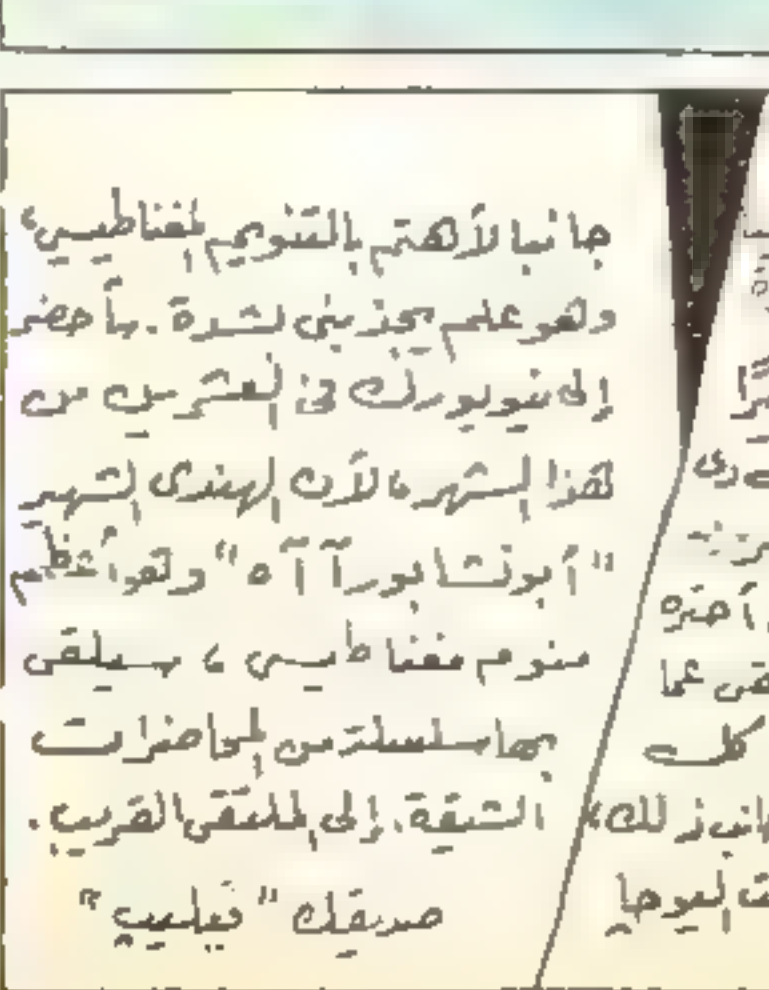 جانبا لأهتم بالتنويم المغناطيسي،
وهو علم يجذبني بشدة. سأحضر
إلى نيويورك في العشرين من
هذا الشهر، لأن الهندي الشهير
"أبونشابورا آ آ ه" وهو أعظم
منوم مغناطيسي، سيلقي
بها سلسلة من المحاضرات
الشيقة. إلى الملتقى القريب.
صديقك "فيليب"
كل